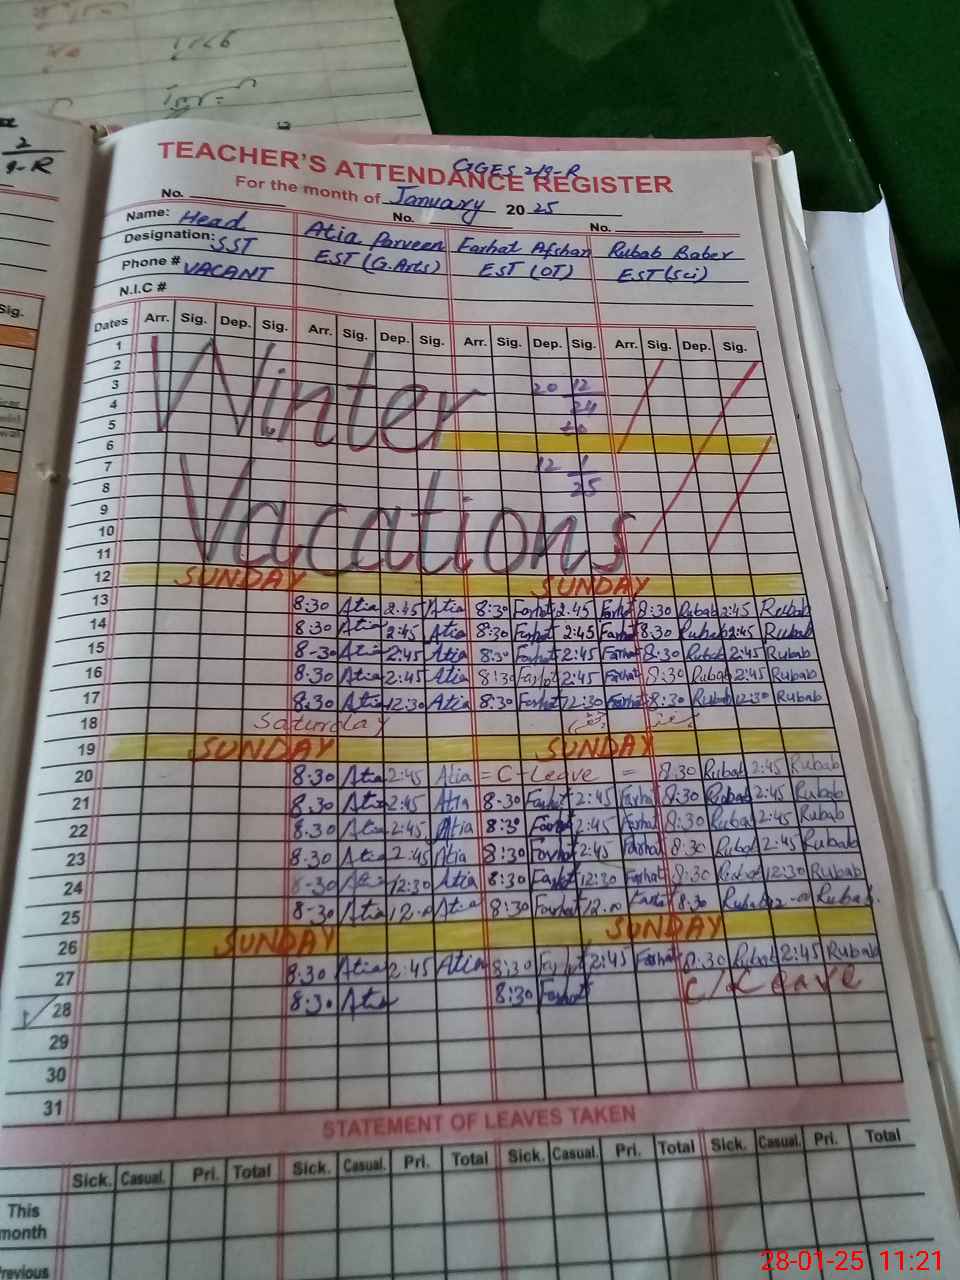 2
9-R
TEACHER'S ATTENDANCE REGISTER
GGES 2/9-R
For the month of January 2025
No. No. No.
Name: Head Atia Parveen Farhat Afshan Rubab Baber
Designation: SST EST (G.Arts) EST (OT) EST (Sci)
Phone # VACANT
N.I.C #
Dates Arr. Sig. Dep. Sig. Arr. Sig. Dep. Sig. Arr. Sig. Dep. Sig. Arr. Sig. Dep. Sig.
1
2
3 20 12
4 24
5 to
6
7 12 1
8 25
9
10
11
Winter
Vacations
12 SUNDAY SUNDAY
13 8:30 Atia 2:45 Atia 8:30 Farhat 2:45 Farhat 8:30 Rubab 2:45 Rubab
14 8:30 Atia 2:45 Atia 8:30 Farhat 2:45 Farhat 8:30 Rubab 2:45 Rubab
15 8-30 Atia 2:45 Atia 8:30 Farhat 2:45 Farhat 8:30 Rubab 2:45 Rubab
16 8:30 Atia 2:45 Atia 8:30 Farhat 2:45 Farhat 8:30 Rubab 2:45 Rubab
17 8:30 Atia 12:30 Atia 8:30 Farhat 12:30 Farhat 8:30 Rubab 12:30 Rubab
18 Saturday
19 SUNDAY SUNDAY
20 8:30 Atia 2:45 Atia = C-Leave = 8:30 Rubab 2:45 Rubab
21 8:30 Atia 2:45 Atia 8-30 Farhat 2:45 Farhat 8:30 Rubab 2:45 Rubab
22 8:30 Atia 2:45 Atia 8:30 Farhat 2:45 Farhat 8:30 Rubab 2:45 Rubab
23 8:30 Atia 2:45 Atia 8:30 Farhat 2:45 Farhat 8:30 Rubab 2:45 Rubab
24 8-30 Atia 12:30 Atia 8:30 Farhat 12:30 Farhat 8:30 Rubab 12:30 Rubab
25 8-30 Atia 12-00 Atia 8:30 Farhat 12.00 Farhat 8:30 Rubab 12-00 Rubab
26 SUNDAY SUNDAY
27 8:30 Atia 2:45 Atia 8:30 Farhat 2:45 Farhat 8:30 Rubab 2:45 Rubab
28 8:30 Atia 8:30 Farhat C/Leave
29
30
31
STATEMENT OF LEAVES TAKEN
Sick. Casual. Pri. Total Sick. Casual. Pri. Total Sick. Casual. Pri. Total Sick. Casual. Pri. Total
This
month
Previous
28-01-25 11:21